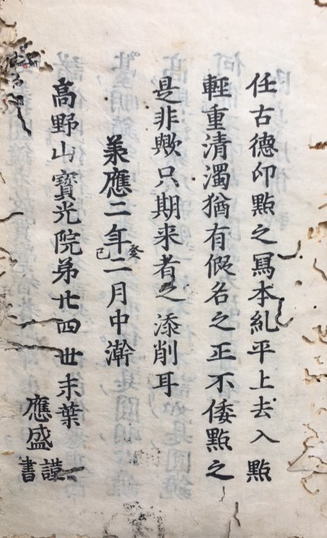 任古德印點之寫本糺平上去入點
輕重清濁猶有假名之正不倭點之
是非歟只期来者之添削耳
羕應二年癸巳二月中澣
高野山寶光院弟廿四丗末葉
應盛謹書